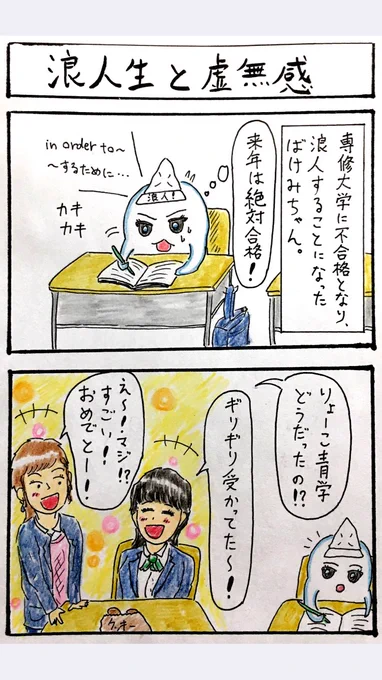 浪人生と虚無感
専修大学に不合格となり、
浪人することになった
ばけみちゃん。
来年は絶対合格!
浪人!
in order to~
~するために…
カキ
カキ
りょーこ青学
どうだったの!?
ギリギリ受かってた~!
え~!マジ!?
すごい!
おめでとー!
クッキー